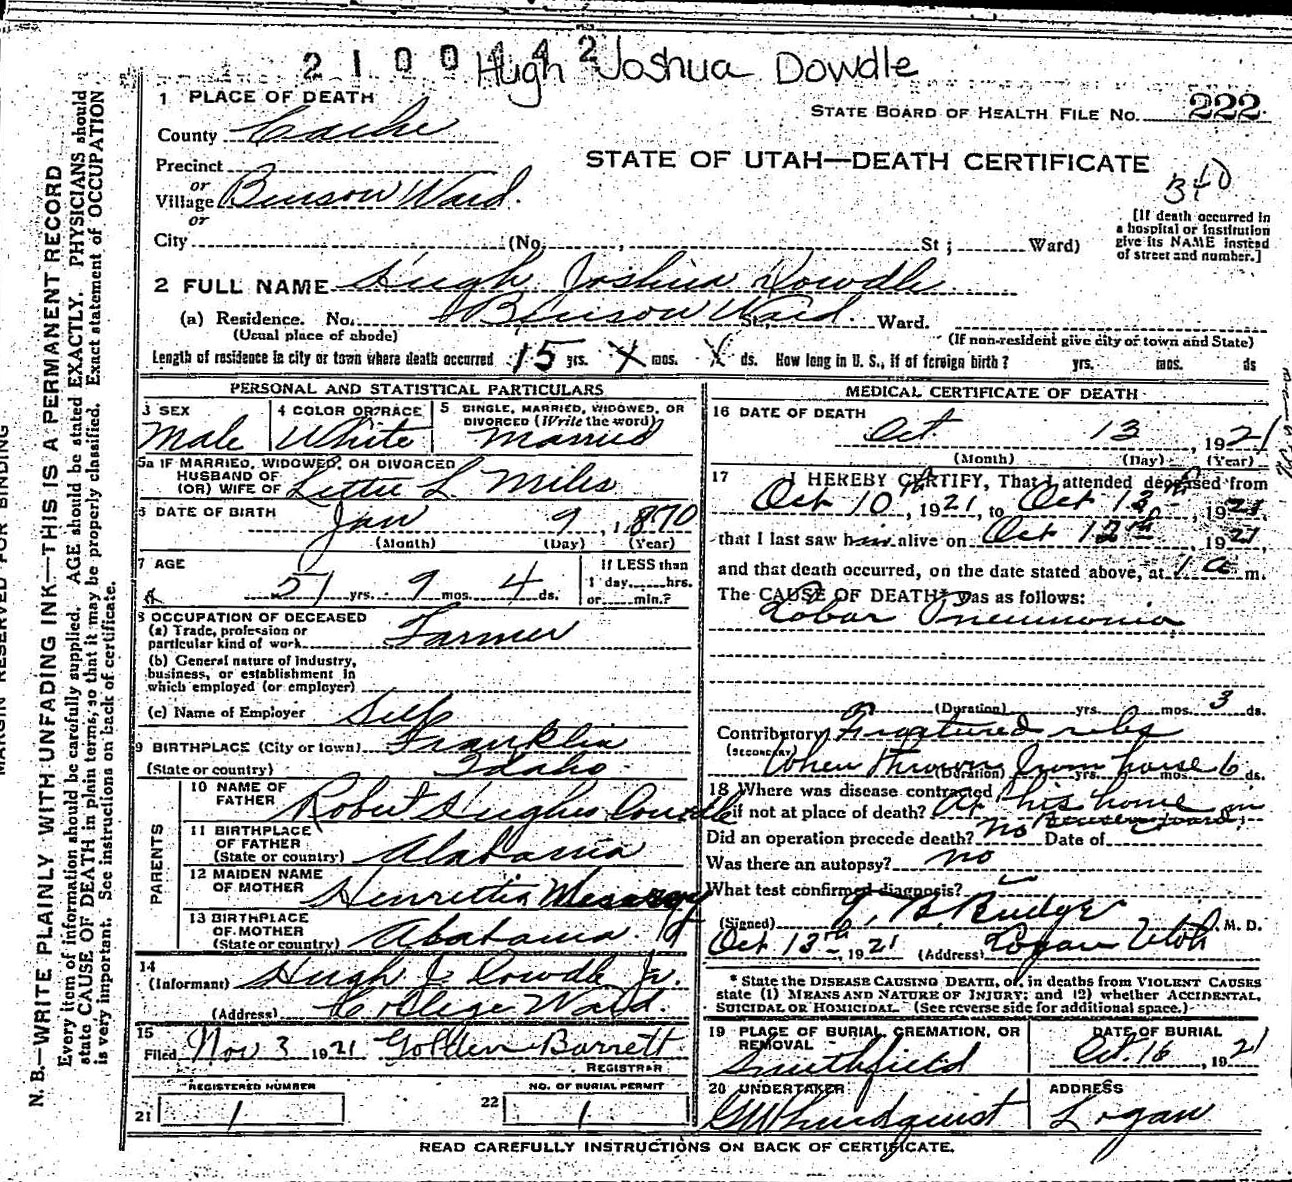 2100442 Hugh Joshua Dowdle
1 PLACE OF DEATH
STATE BOARD OF HEALTH FILE NO. 222
County Cache
STATE OF UTAH—DEATH CERTIFICATE
Precinct
or
Village Benson Ward.
or
[If death occurred in
a hospital or institution
give its NAME instead
of street and number.]
City (No. , St ; Ward)
2 FULL NAME Hugh Joshua Dowdle
(a) Residence. No. Benson Ward. St., Ward.
(Usual place of abode) (If non-resident give city or town and State)
Length of residence in city or town where death occurred 15 yrs. X mos. X ds. How long in U. S., if of foreign birth? yrs. mos. ds
PERSONAL AND STATISTICAL PARTICULARS
3 SEX 4 COLOR OR RACE 5 SINGLE, MARRIED, WIDOWED, OR
DIVORCED (Write the word)
Male White Married
5a IF MARRIED, WIDOWED, OR DIVORCED
HUSBAND OF
(OR) WIFE OF Lettie L. Miles
6 DATE OF BIRTH
Jan 9, 1870
(Month) (Day) (Year)
7 AGE If LESS than
1 day, hrs.
51 yrs. 9 mos. 4 ds. or min.?
8 OCCUPATION OF DECEASED
(a) Trade, profession or
particular kind of work Farmer
(b) General nature of industry,
business, or establishment in
which employed (or employer)
(c) Name of Employer Self
9 BIRTHPLACE (City or town) Franklin
(State or country) Idaho.
PARENTS
10 NAME OF
FATHER Robert Hughes Dowdle
11 BIRTHPLACE
OF FATHER
(State or country) Alabama
12 MAIDEN NAME
OF MOTHER Henrietta Messervy
13 BIRTHPLACE
OF MOTHER
(State or country) Alabama.
14
(Informant) Hugh J. Dowdle Jr.
(Address) College Ward.
15
Filed Nov 3 1921 Golden Barrett
REGISTRAR
REGISTERED NUMBER NO. OF BURIAL PERMIT
21 1 22 1
MEDICAL CERTIFICATE OF DEATH
16 DATE OF DEATH
Oct 13, 1921
(Month) (Day) (Year)
17 I HEREBY CERTIFY, That I attended deceased from
Oct 10th, 1921, to Oct 13th, 1921,
that I last saw him alive on Oct 12th, 1921
and that death occurred, on the date stated above, at 1 a m.
The CAUSE OF DEATH* was as follows:
Lobar Pneumonia
(Duration) yrs. mos. 3 ds.
Contributory Fractured ribs
(SECONDARY) When thrown from horse
(Duration) yrs. mos. 6 ds.
18 Where was disease contracted
if not at place of death? At his home in
Benson Ward,
Did an operation precede death? no Date of
Was there an autopsy? no
What test confirmed diagnosis?
(Signed) T. B. Budge, M. D.
Oct 13th, 1921 (Address) Logan Utah
* State the DISEASE CAUSING DEATH, or, in deaths from VIOLENT CAUSES
state (1) MEANS AND NATURE OF INJURY; and (2) whether ACCIDENTAL,
SUICIDAL OR HOMICIDAL. (See reverse side for additional space.)
19 PLACE OF BURIAL, CREMATION, OR
REMOVAL
DATE OF BURIAL
Smithfield Oct. 16, 1921
20 UNDERTAKER ADDRESS
GW Lindquist Logan
READ CAREFULLY INSTRUCTIONS ON BACK OF CERTIFICATE.
MARGIN RESERVED FOR BINDING
N. B.—WRITE PLAINLY WITH UNFADING INK—THIS IS A PERMANENT RECORD
Every item of information should be carefully supplied. AGE should be stated EXACTLY. PHYSICIANS should
state CAUSE OF DEATH in plain terms, so that it may be properly classified. Exact statement of OCCUPATION
is very important. See instructions on back of certificate.